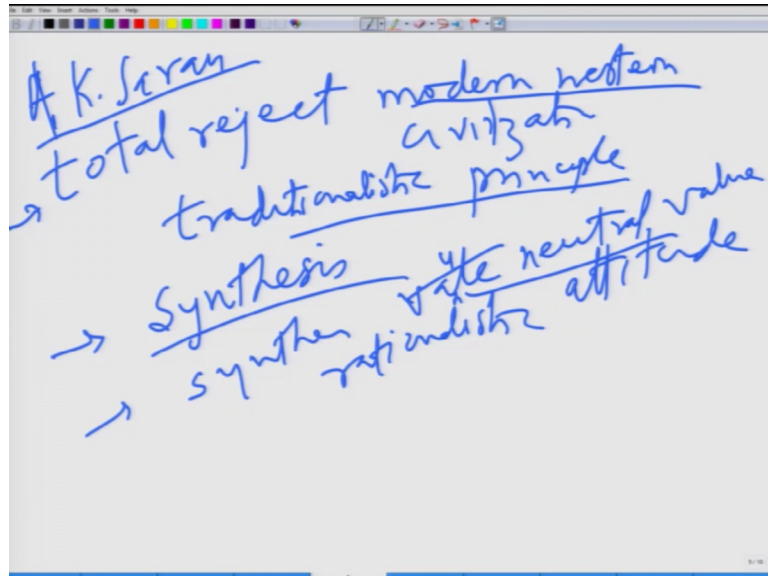 File Edit View Insert Actions Tools Help
A.K. Saran
total reject modern western
civilizatn
traditionalistic principle
Synthesis
synthes value neutral value
rationalistic attitude
5/10